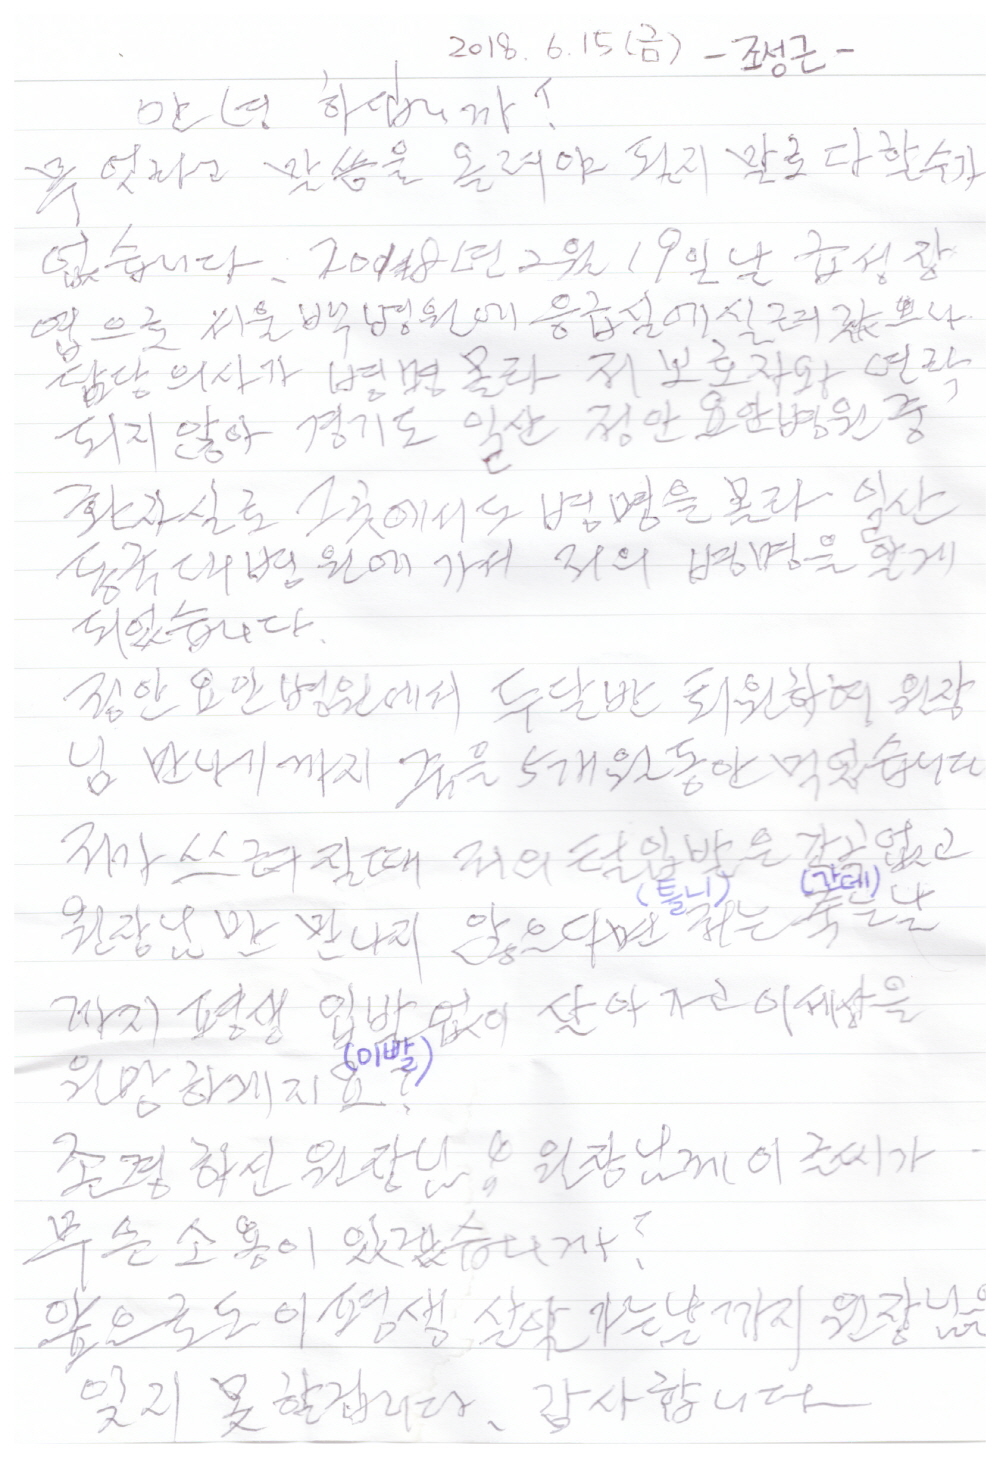 2018. 6. 15(금) - 조성근 -
안녕 하십니까?
무엇라고 말씀을 올려야 될지 말로 다할수가
없습니다. 2018년 2월 19일날 급성장
염으로 서울 백병원에 응급실에 실려 갔으나
담당의사가 병명 몰라 저 보호자와 연락
되지않아 경기도 일산 정안 요안병원 중
환자실로 그곳에서도 병명을 몰라 일산
동국대병원에 가서 저의 병명을 알게
되었습니다.
정안 요안병원에서 두달반 퇴원하여 원장
님 만나기까지 죽을 5개월동안 먹었습니다
저가 쓰려질때 저의 털입발은 간곳없고
(틀니) (간데)
원장님만 만나지 않으다면 저는 죽는날
까지 평생 입발없이 살아가고 이세상을
(이빨)
원망하게지요?
존경하신 원장님! 원장님께 이 글씨가
무슨 소용이 있겠습니까?
앞으로도 이평생 살아가는날까지 원장님을
잊지 못할겁니다. 감사합니다